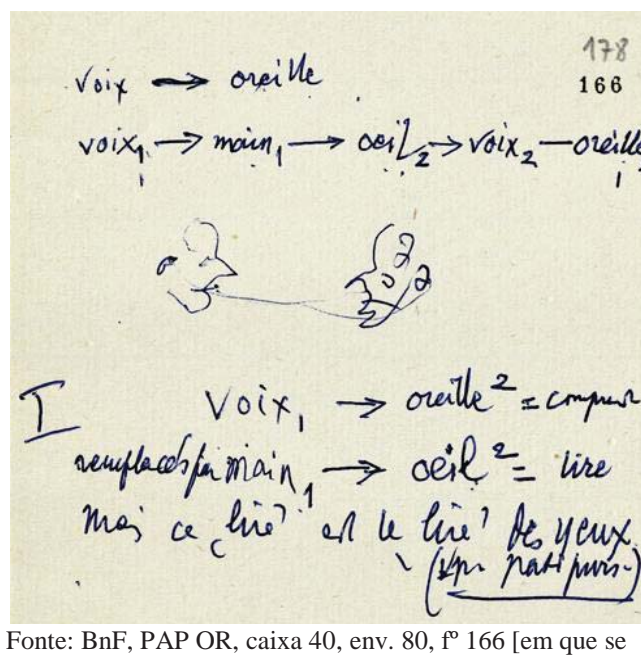 178
166
voix → oreille
voix₁ → main₁ → oeil₂ → voix₂ — oreille
1 1
I voix₁ → oreille ² =
remplacés par main₁ → oeil ² = lire
mais ce ‹lire› est le ‹lire› des yeux
Fonte: BnF, PAP OR, caixa 40, env. 80, fº 166 [em que se